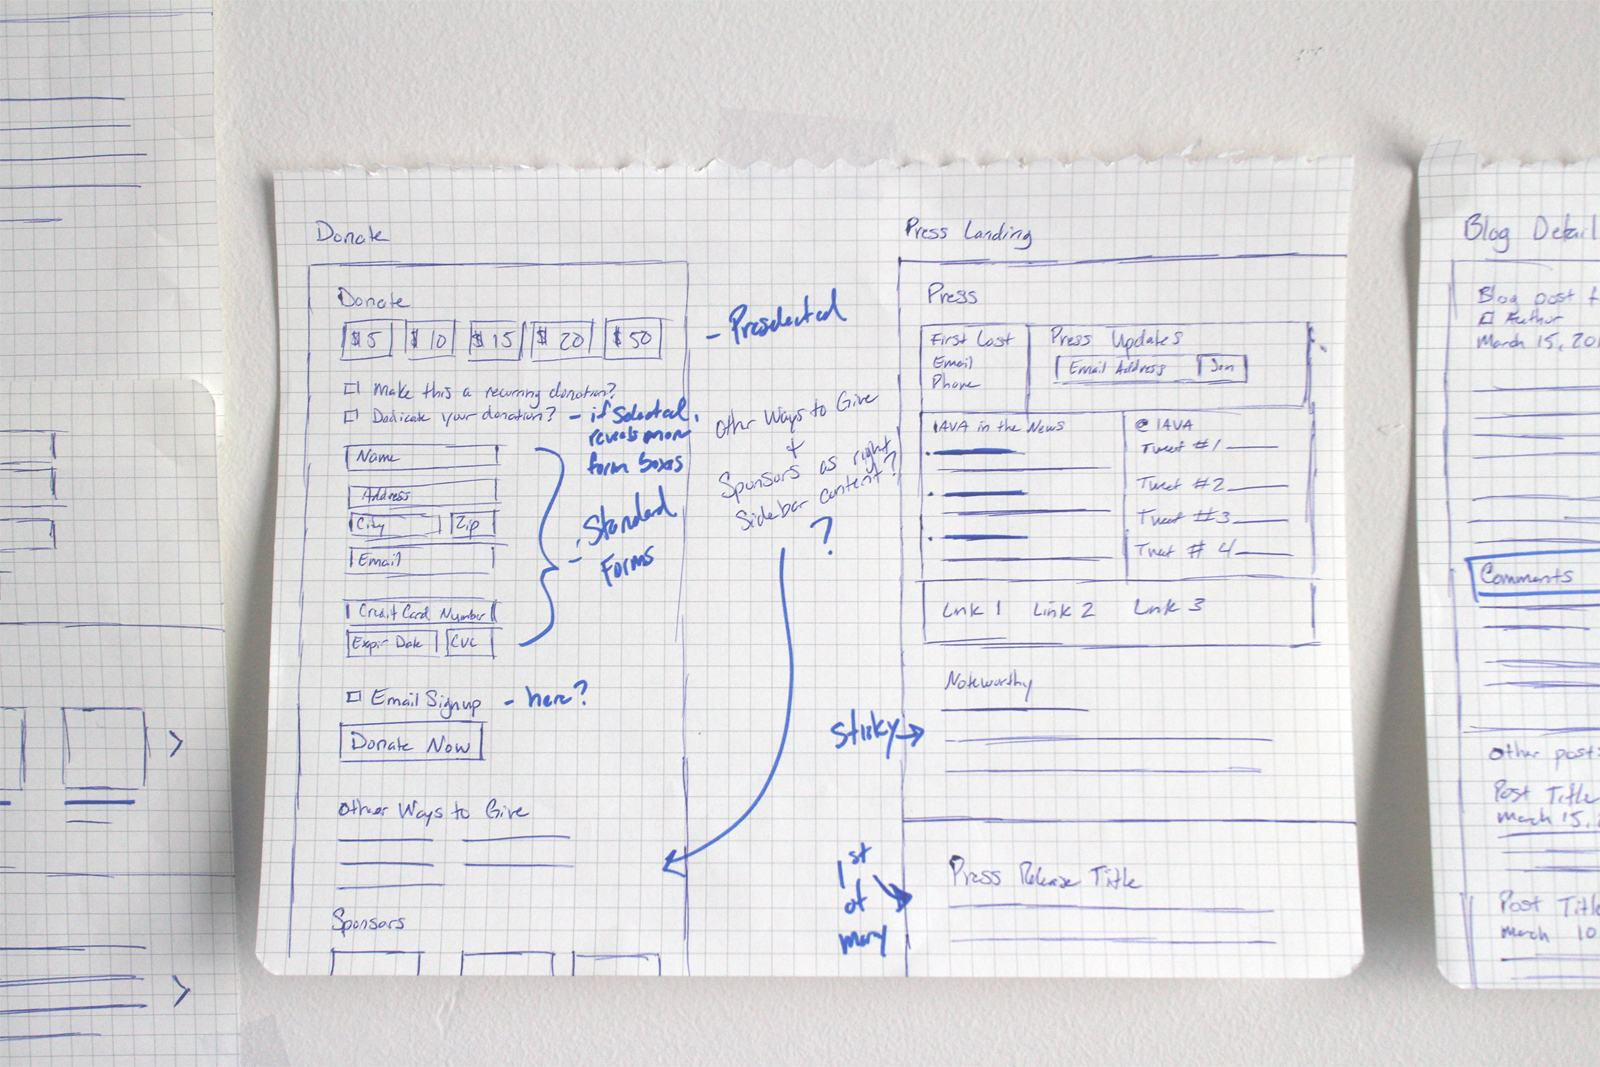 Donate
Donate
$5 $10 $15 $20 $50
- Preselected
Make this a recurring donation?
Dedicate your donation? - if selected,
reveals more
form boxes
Name
Address
City Zip
Email
Credit Card Number
Expir Date CVC
- Standard
Forms
Email Signup - here?
Donate Now
Other Ways to Give
Sponsors
Other Ways to Give
+
Sponsors as right
Sidebar content?
?
Press Landing
Press
First Last
Email
Phone
Press Updates
Email Address Join
IAVA in the News
@ IAVA
Tweet #1
Tweet #2
Tweet #3
Tweet #4
Link 1 Link 2 Link 3
Noteworthy
Sticky →
Press Release Title
1st
of
many
Blog Detail
Blog post
Author
March 15, 201
Comments
Other posts
Post Title
March 15,
Post Title
March 10